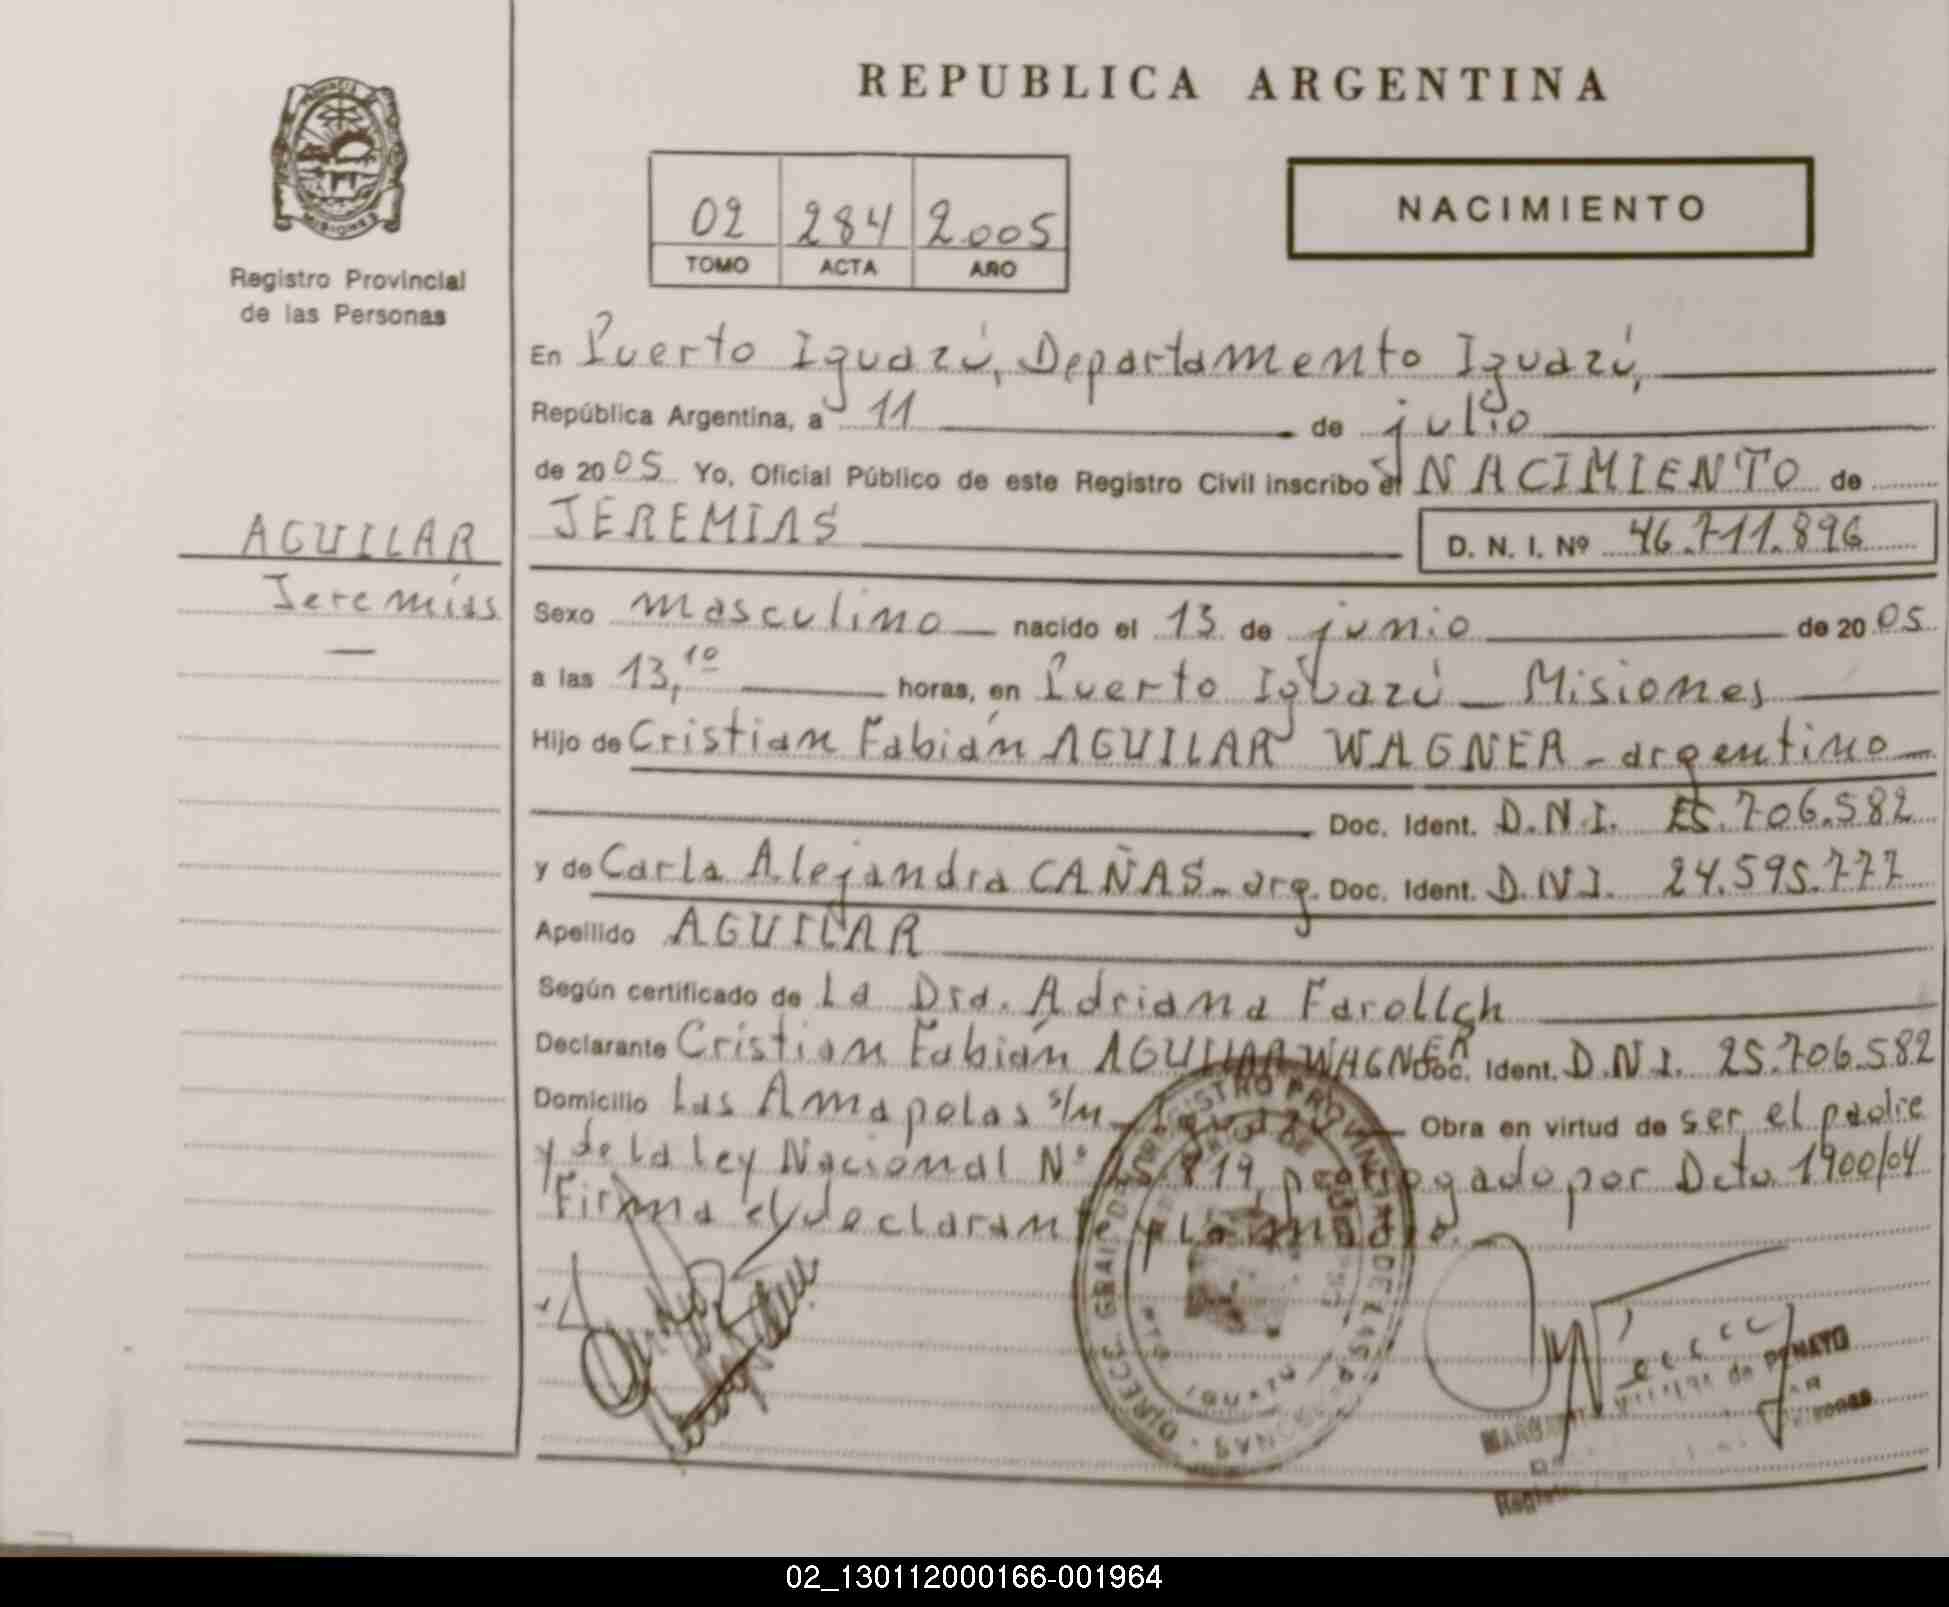 REPUBLICA ARGENTINA
MISIONES
Registro Provincial
de las Personas
02 284 2005
TOMO ACTA AÑO
NACIMIENTO
En Puerto Iguazú, Departamento Iguazú,
República Argentina, a 11 de julio
de 2005 Yo, Oficial Público de este Registro Civil inscribo el NACIMIENTO de
AGUILAR
Jeremías
JEREMIAS D. N. I. Nº 46.711.896
Sexo masculino nacido el 13 de junio de 2005
a las 13,10 horas, en Puerto Iguazú - Misiones
Hijo de Cristian Fabián AGUILAR WAGNER - argentino
Doc. Ident. D.N.I. 25.706.582
y de Carla Alejandra CAÑAS - arg. Doc. Ident. D.N.I. 24.595.777
Apellido AGUILAR
Según certificado de La Dra. Adriana
Declarante Cristian Fabián AGUILAR WAGNER Doc. Ident. D.N.I. 25.706.582
Domicilio Las Amapolas s/n - Iguazú Obra en virtud de ser el padre
y de la Ley Nacional Nº 25.819 prorrogado por Dcto 1900/04
Firma el declarante y la madre.
DIRECC. GRAL. DEL REGISTRO PROVINCIAL DE LAS PERSONAS
PTO. IGUAZU
de PENAYO
02_130112000166-001964